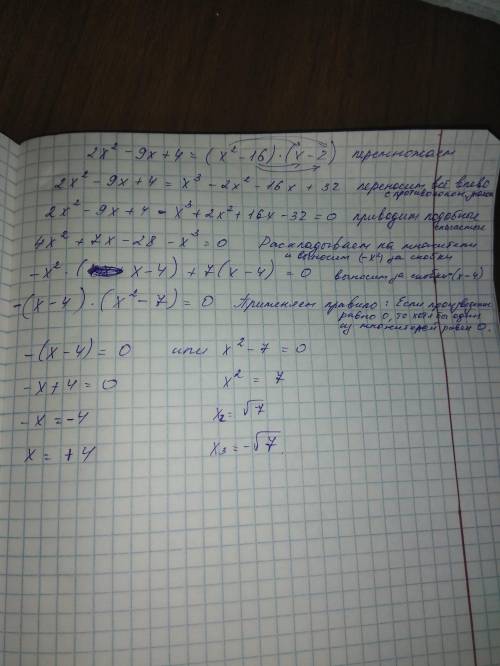 2x² - 9x + 4 = (x² - 16) · (x - 2) перемножаем
2x² - 9x + 4 = x³ - 2x² - 16x + 32 переносим всё влево
с противополож. знак
2x² - 9x + 4 - x³ + 2x² + 16x - 32 = 0 приводим подобные
слагаемые
4x² + 7x - 28 - x³ = 0 Раскладываем на множители
и выносим (-x²) за скобки
-x² · ( x - 4) + 7(x - 4) = 0 выносим за скобки -(x - 4)
-(x - 4) · (x² - 7) = 0 Применяем правило: Если произведение
равно 0, то хотя бы один
из множителей равен 0.
-(x - 4) = 0 или x² - 7 = 0
-x + 4 = 0 x² = 7
-x = -4 x₂ = √7
x = +4 x₃ = -√7.